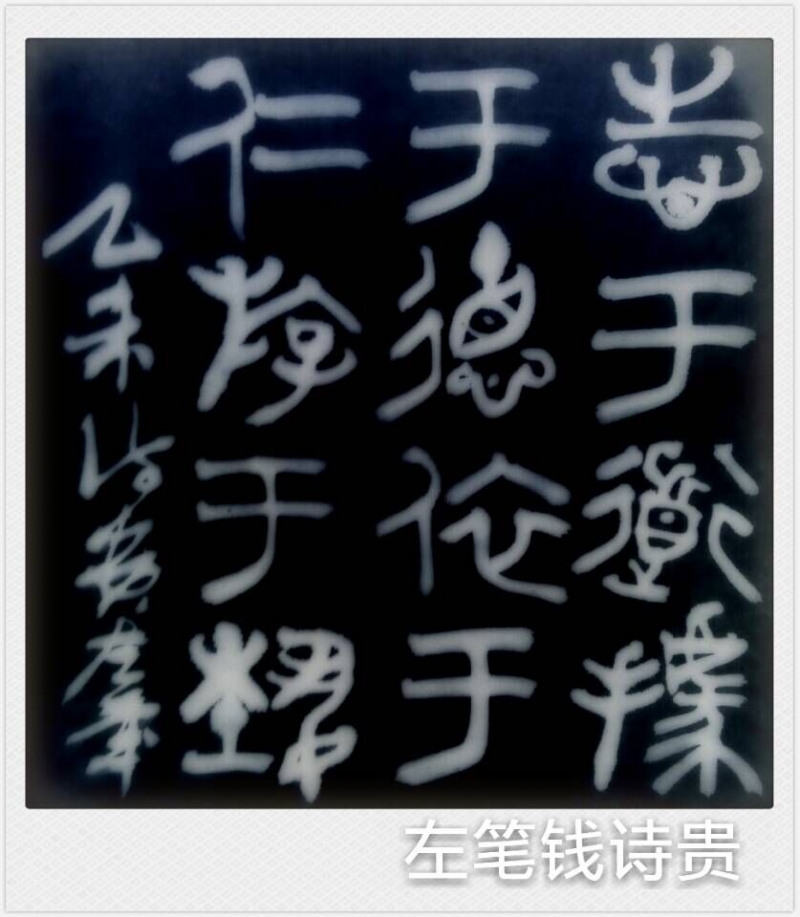 志于道據
于德依于
仁游于藝
乙未诗贵左笔
左笔钱诗贵